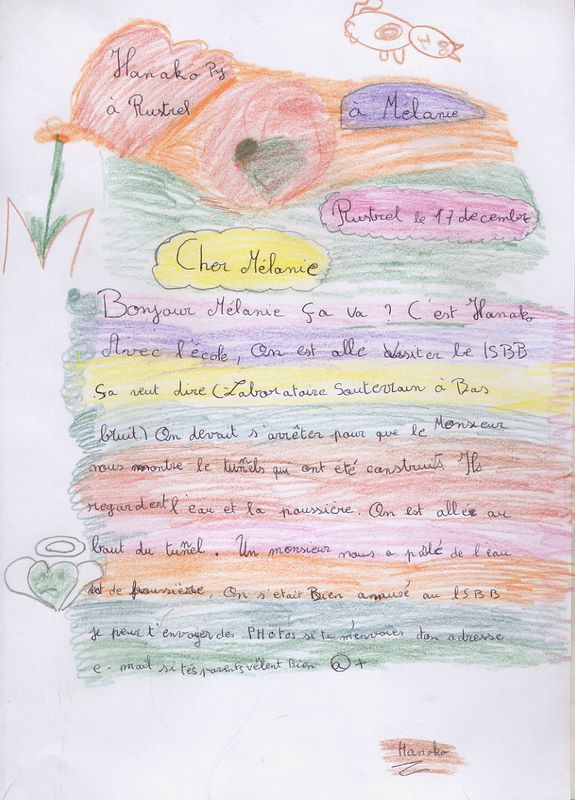 Hanako Py
à Rustrel
à Mélanie
Rustrel le 17 decembre
Cher Mélanie
Bonjour Mélanie Ça va ? C'est Hanako
Avec l'école, On est allé visiter le LSBB
Ça veut dire (Laboratoire Souterrain à Bas
bruit) On devait s'arrêter pour que le Monsieur
nous montre le tunnels qui ont été construits Ils
regardent l'eau et la poussière. On est allez au
bout du tunnel. Un monsieur nous a parlé de l'eau
et de poussière, On s'etait Bien amusé au LSBB
je peux t'envoyer des PHotos si tu m'envoies ton adresse
e-mail si tes parents vêlent Bien @ +
Hanako